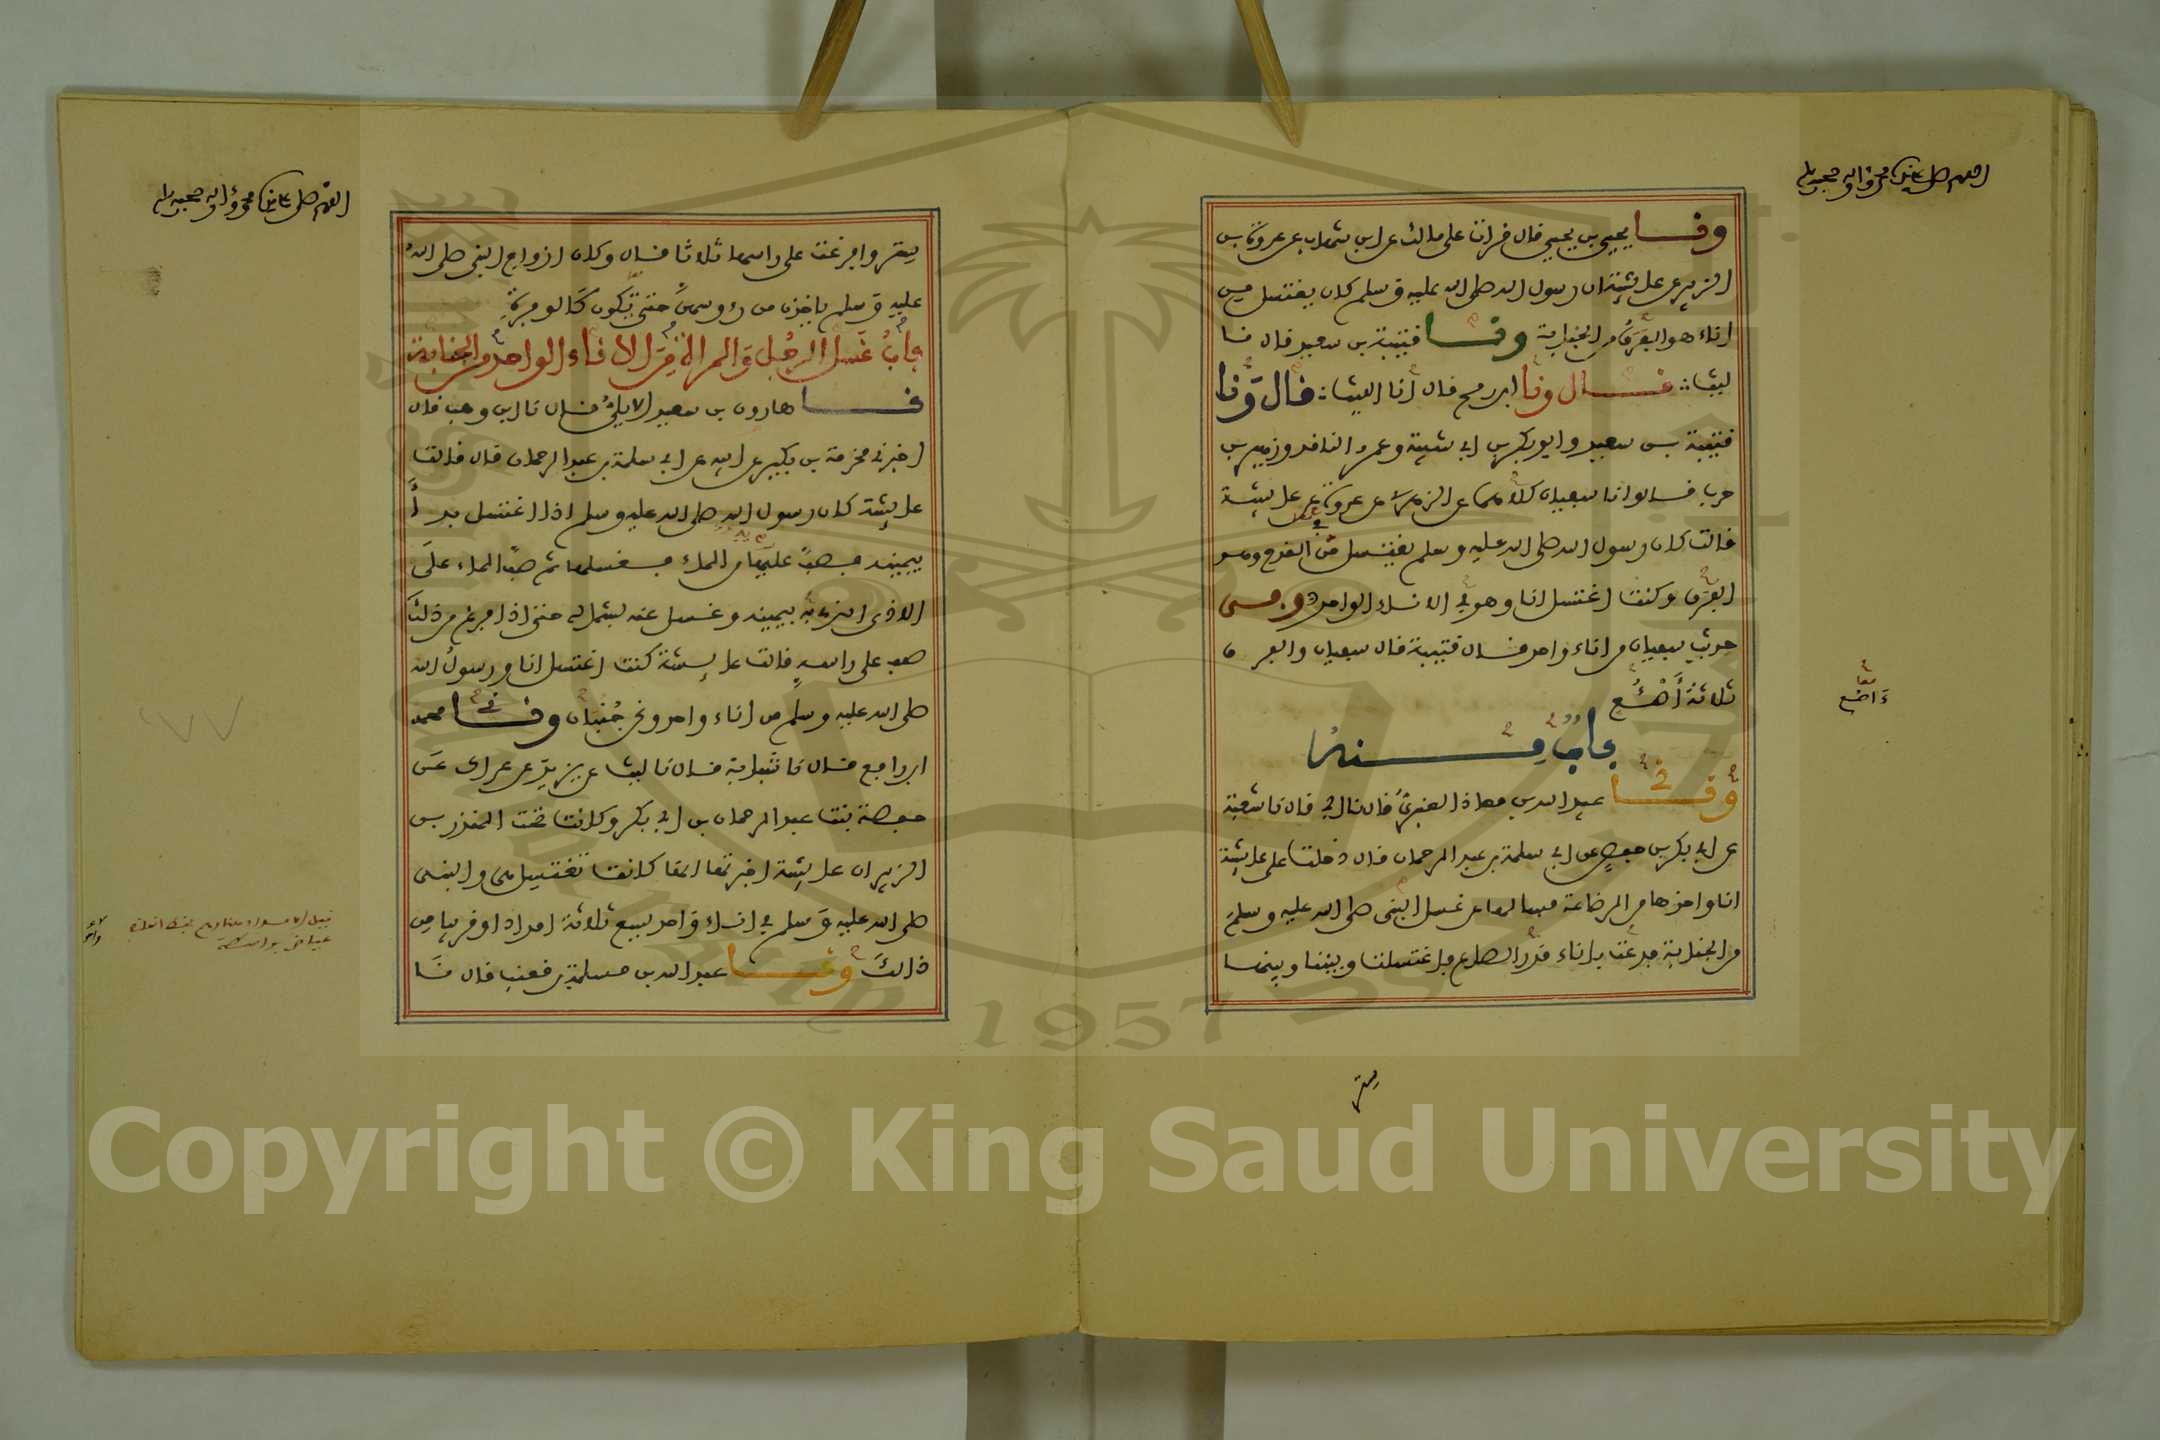 اللهم صل على سيدنا محمد وءاله وصحبه وسلم
ونا يحيى بن يحيى قال قرات على مالك عن ابن شهاب عن عروة بن
الزبير عن عايشة ان رسول الله صلى الله عليه وسلم كان يغتسل من
اناء هو الفرق من الجنابة ونا قتيبة بن سعيد قال نا
ليث قال ونا ابن رمح قال انا الليث قال ونا
قتيبة بن سعيد وابو بكر بن ابي شيبة وعمرو الناقد وزهير بن
حرب قالوا نا سفيان كلاهما عن الزهري عن عروة عن عايشة
قالت كان رسول الله صلى الله عليه وسلم يغتسل في القدح وهو
الفرق وكنت اغتسل انا وهو في الاناء الواحد وفي
حديث سفيان من اناء واحد قال قتيبة قال سفيان والفرق
ثلاثة أَصْوُع
ءاصع
معا
باب منه
ونا عبيد الله بن معاذ العنبري قال نا ابي قال نا شعبة
عن ابي بكر بن حفص عن ابي سلمة بن عبد الرحمان قال دخلت على عايشة
انا واخوها من الرضاعة فسالها عن غسل النبي صلى الله عليه وسلم
من الجنابة فدعت باناء قدر الصاع فاغتسلت وبيننا وبينها
ستر
اللهم صل على سيدنا محمد وءاله وصحبه وسلم
ستر وافرغت على راسها ثلاثا قال وكان ازواج النبي صلى الله
عليه وسلم ياخذن من رءوسهن حتى تكون كالوفرة
باب غسل الرجل والمراة من الاناء الواحد من الجنابة
نا هارون بن سعيد الايلي قال نا ابن وهب قال
اخبرني مخرمة بن بكير عن ابيه عن ابي سلمة بن عبد الرحمان قال قالت
عايشة كان رسول الله صلى الله عليه وسلم اذا اغتسل بدأ
بيمينه فصب عليها من الماء فغسلها ثم صب الماء على
الاذى الذي به بيمينه وغسل عنه بشماله حتى اذا فرغ من ذلك
صب على راسه قالت عايشة كنت اغتسل انا ورسول الله
صلى الله عليه وسلم من اناء واحد ونحن جنبان ونا محمد
ابن رافع قال نا شبابة قال نا ليث عن يزيد عن عراك عن
حفصة بنت عبد الرحمان بن ابي بكر وكانت تحت المنذر بن
الزبير ان عايشة اخبرتها انها كانت تغتسل هي والنبي
صلى الله عليه وسلم في اناء واحد يسع ثلاثة امداد او قريبا من
ذالك ونا عبد الله بن مسلمة بن قعنب قال نا
Copyright © King Saud University
1957